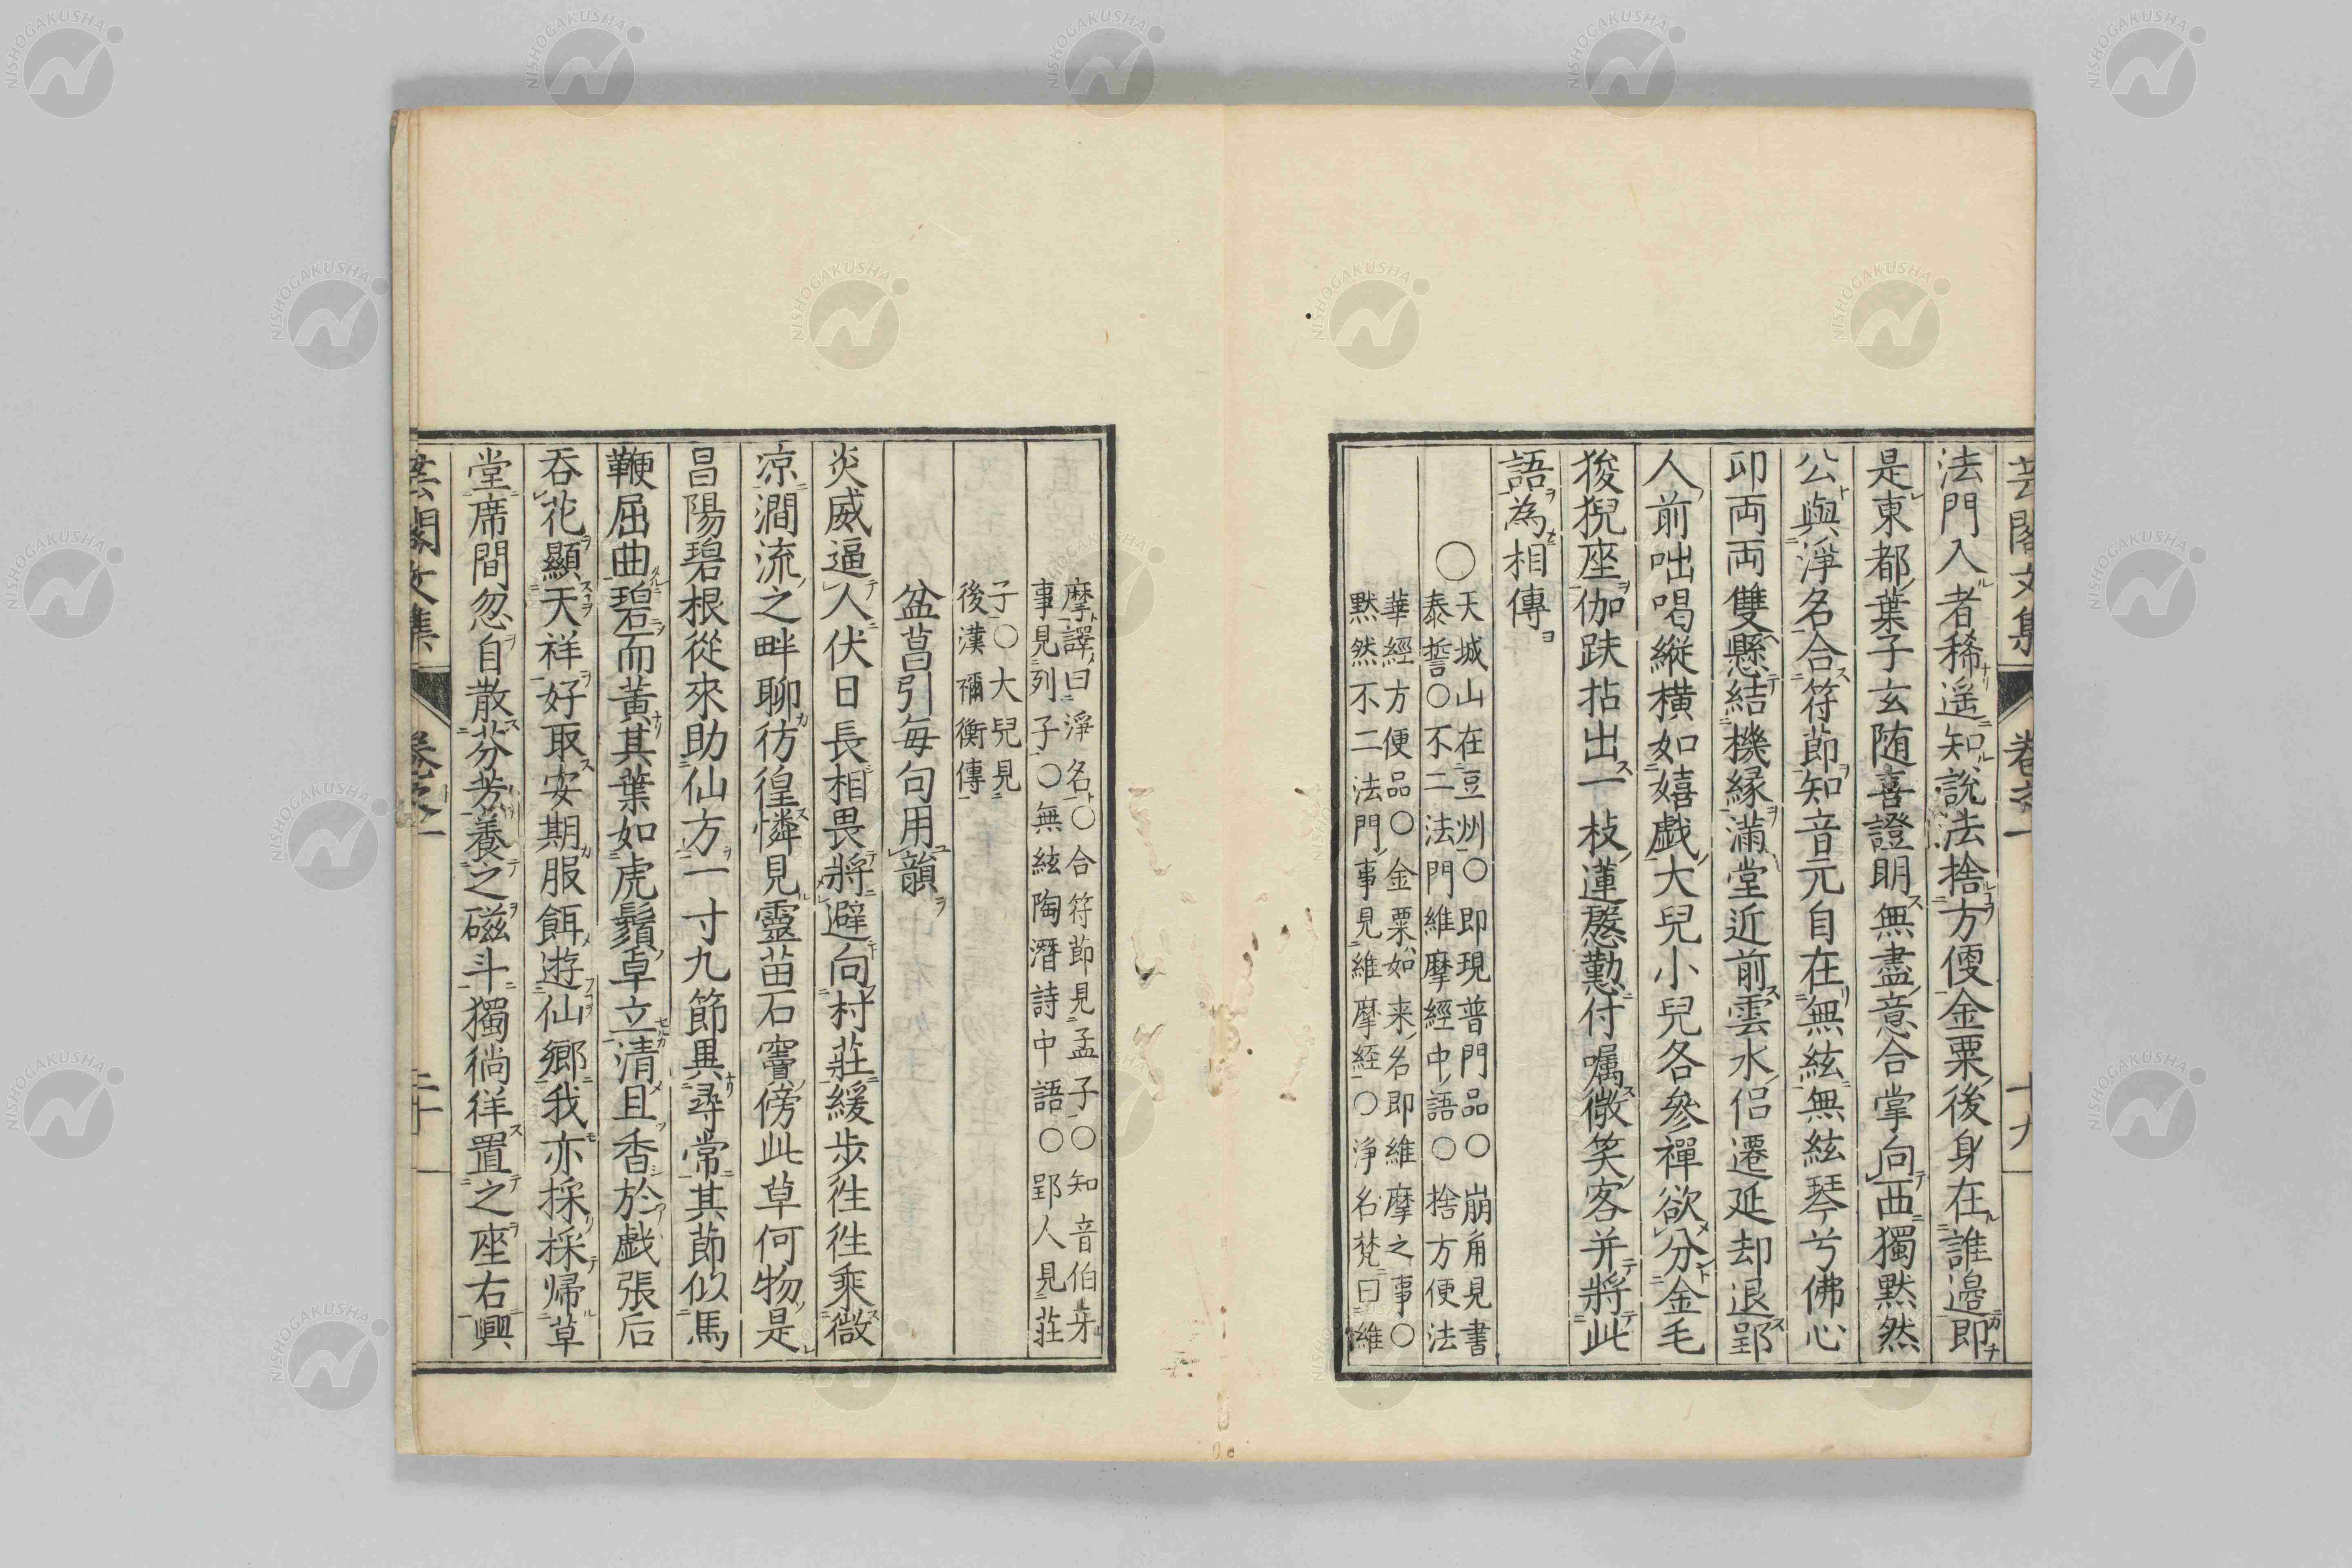 芸閣文集 卷之一 十九
法門入者稀遥知說法捨方便金粟後身在誰邉即
是東都葉子玄随喜證明無盡意合掌向西獨默然
公與淨名合符節知音元自在無絃無絃琴兮佛心
印両両雙懸結機縁滿堂近前雲水侶遷延却退郢
人前咄喝縱橫如嬉戯大兒小兒各參禪欲分金毛
狻猊座伽趺拈出一枝蓮慇懃付囑微笑客并將此
語為相傳
○天城山在豆州○即現普門品○崩角見書
泰誓○不二法門維摩經中語○捨方便法
華經方便品○金粟如来名即維摩之事○
默然不二法門事見維摩経○淨名梵曰維
摩譯曰淨名○合符節見孟子○知音伯牙
事見列子○無絃陶潛詩中語○郢人見莊
子○大兒見
後漢禰衡傳
盆菖引每句用韻
炎威逼人伏日長相畏將避向村莊緩步徃徃乘微
凉澗流之畔聊彷徨憐見靈苗石竇傍此草何物是
昌陽碧根從來助仙方一寸九節異尋常其節似馬
鞭屈曲碧而黃其葉如虎鬚卓立清且香於戯張后
吞花顯天祥好取安期服餌遊仙鄉我亦採採帰草
堂席間忽自散芬芳養之磁斗獨徜徉置之座右興
芸閣文集 卷之一 二十
NISHOGAKUSHA